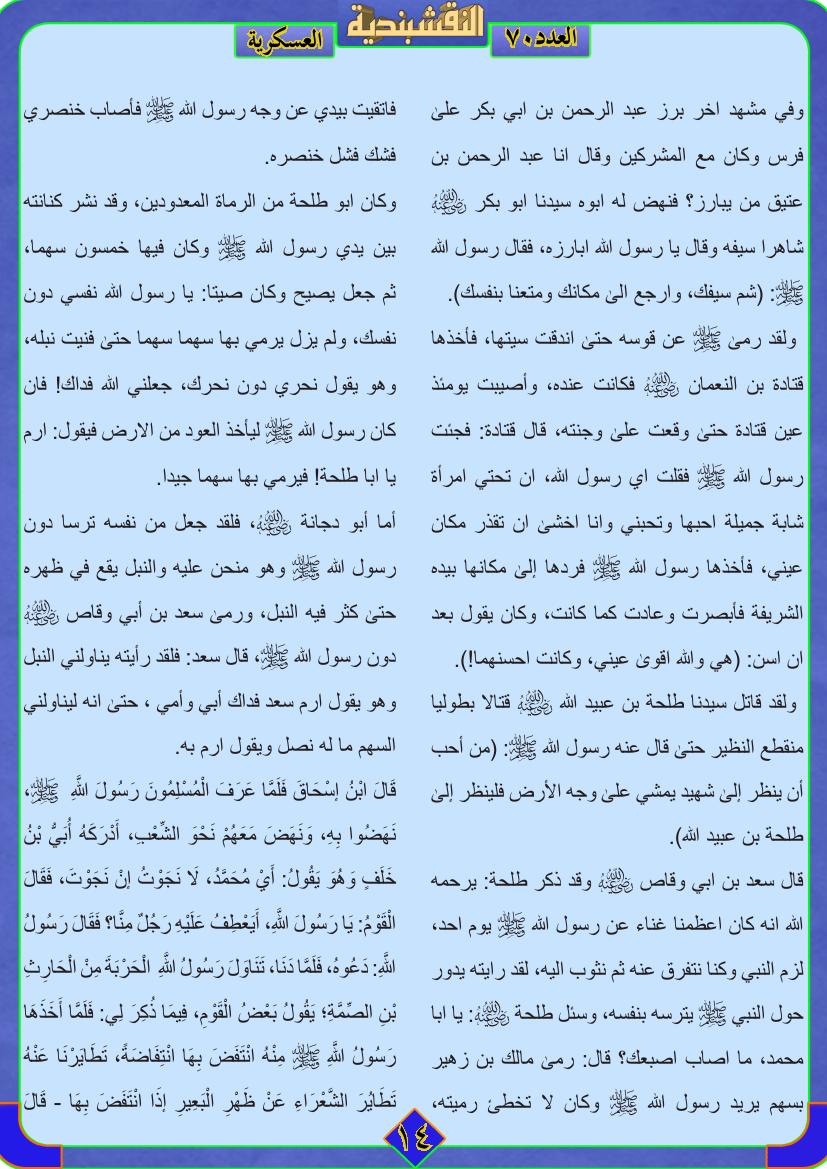 العدد٧٠
النقشبندية
العسكرية
وفي مشهد اخر برز عبد الرحمن بن ابي بكر علىٰ
فرس وكان مع المشركين وقال انا عبد الرحمن بن
عتيق من يبارز؟ فنهض له ابوه سيدنا ابو بكر رضي الله عنه
شاهرا سيفه وقال يا رسول الله ابارزه، فقال رسول الله
ﷺ: (شم سيفك، وارجع الىٰ مكانك ومتعنا بنفسك).
ولقد رمىٰ ﷺ عن قوسه حتىٰ اندقت سيتها، فأخذها
قتادة بن النعمان رضي الله عنه فكانت عنده، وأصيبت يومئذ
عين قتادة حتىٰ وقعت علىٰ وجنته، قال قتادة: فجئت
رسول الله ﷺ فقلت اي رسول الله، ان تحتي امرأة
شابة جميلة احبها وتحبني وانا اخشىٰ ان تقذر مكان
عيني، فأخذها رسول الله ﷺ فردها إلىٰ مكانها بيده
الشريفة فأبصرت وعادت كما كانت، وكان يقول بعد
ان اسن: (هي والله اقوىٰ عيني، وكانت احسنهما!).
ولقد قاتل سيدنا طلحة بن عبيد الله رضي الله عنه قتالا بطوليا
منقطع النظير حتىٰ قال عنه رسول الله ﷺ: (من أحب
أن ينظر إلىٰ شهيد يمشي علىٰ وجه الأرض فلينظر إلىٰ
طلحة بن عبيد الله).
قال سعد بن ابي وقاص رضي الله عنه وقد ذكر طلحة: يرحمه
الله انه كان اعظمنا غناء عن رسول الله ﷺ يوم احد،
لزم النبي وكنا نتفرق عنه ثم نثوب اليه، لقد رايته يدور
حول النبي ﷺ يترسه بنفسه، وسئل طلحة رضي الله عنه: يا ابا
محمد، ما اصاب اصبعك؟ قال: رمىٰ مالك بن زهير
بسهم يريد رسول الله ﷺ وكان لا تخطئ رميته،
فاتقيت بيدي عن وجه رسول الله ﷺ فأصاب خنصري
فشك فشل خنصره.
وكان ابو طلحة من الرماة المعدودين، وقد نشر كنانته
بين يدي رسول الله ﷺ وكان فيها خمسون سهما،
ثم جعل يصيح وكان صيتا: يا رسول الله نفسي دون
نفسك، ولم يزل يرمي بها سهما سهما حتىٰ فنيت نبله،
وهو يقول نحري دون نحرك، جعلني الله فداك! فان
كان رسول الله ﷺ ليأخذ العود من الارض فيقول: ارم
يا ابا طلحة! فيرمي بها سهما جيدا.
أما أبو دجانة رضي الله عنه، فلقد جعل من نفسه ترسا دون
رسول الله ﷺ وهو منحن عليه والنبل يقع في ظهره
حتىٰ كثر فيه النبل، ورمىٰ سعد بن أبي وقاص رضي الله عنه
دون رسول الله ﷺ، قال سعد: فلقد رأيته يناولني النبل
وهو يقول ارم سعد فداك أبي وأمي ، حتىٰ انه ليناولني
السهم ما له نصل ويقول ارم به.
قَالَ ابْنُ إسْحَاقَ فَلَمَّا عَرَفَ الْمُسْلِمُونَ رَسُولَ اللَّهِ ﷺ،
نَهَضُوا بِهِ، وَنَهَضَ مَعَهُمْ نَحْوَ الشِّعْبِ، أَدْرَكَهُ أُبَيُّ بْنُ
خَلَفٍ وَهُوَ يَقُولُ: أَيْ مُحَمَّدُ، لَا نَجَوْتُ إنْ نَجَوْتَ، فَقَالَ
الْقَوْمُ: يَا رَسُولَ اللَّهِ، أَيَعْطِفُ عَلَيْهِ رَجُلٌ مِنَّا؟ فَقَالَ رَسُولُ
اللَّهِ: دَعُوهُ، فَلَمَّا دَنَا، تَنَاوَلَ رَسُولُ اللَّهِ الْحَرْبَةَ مِنْ الْحَارِثِ
بْنِ الصِّمَّةِ؛ يَقُولُ بَعْضُ الْقَوْمِ، فِيمَا ذُكِرَ لِي: فَلَمَّا أَخَذَهَا
رَسُولُ اللَّهِ ﷺ مِنْهُ انْتَفَضَ بِهَا انْتِفَاضَةً، تَطَايَرْنَا عَنْهُ
تَطَايُرَ الشَّعْرَاءِ عَنْ ظَهْرِ الْبَعِيرِ إذَا انْتَفَضَ بِهَا - قَالَ
١٤